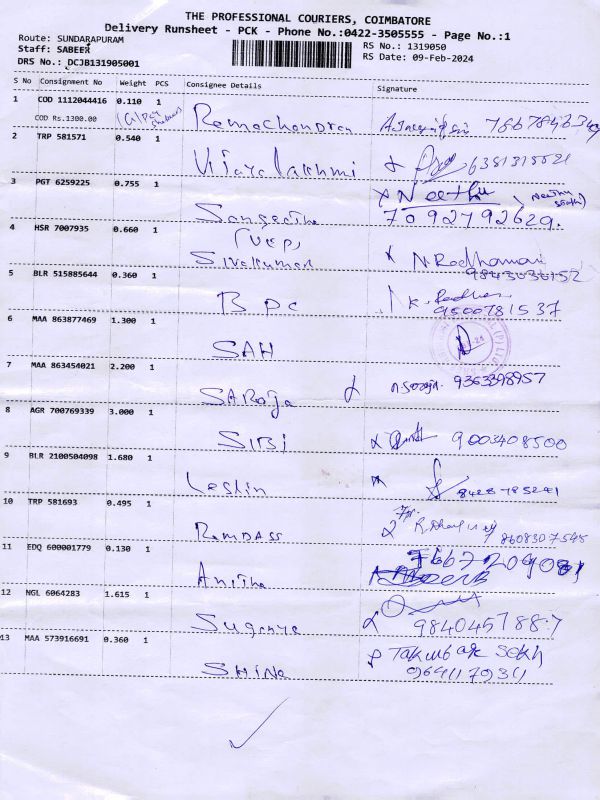 THE PROFESSIONAL COURIERS, COIMBATORE
Delivery Runsheet - PCK - Phone No.:0422-3505555 - Page No.:1
Route: SUNDARAPURAM
RS No.: 1319050
Staff: SABEER
RS Date: 09-Feb-2024
DRS No.: DCJB131905001
S No Consignment No Weight PCS Consignee Details Signature
1 COD 1112044416 0.110 1 Ramachandran
COD Rs.1300.00 (G)Pay
2 TRP 581571 0.540 1 Vijayalakshmi
3 PGT 6259225 0.755 1 Sangeetha Neethu
7092792629.
4 HSR 7007935 0.660 1 (VCP)
Sivakumar N. Radhamani
5 BLR 515885644 0.360 1 BPC K. Radha
9500781537
6 MAA 863877469 1.300 1 SAH
7 MAA 863454021 2.200 1 SARoja 9363398957
8 AGR 700769339 3.000 1 SIBI 9003408500
9 BLR 2100504098 1.680 1 Leslin
10 TRP 581693 0.495 1 Ramdass 8608307545
11 EDQ 600001779 0.130 1 Anitha
12 NGL 6064283 1.615 1 Suganya 9840457887
13 MAA 573916691 0.360 1 SHINe Takmbak Sekh